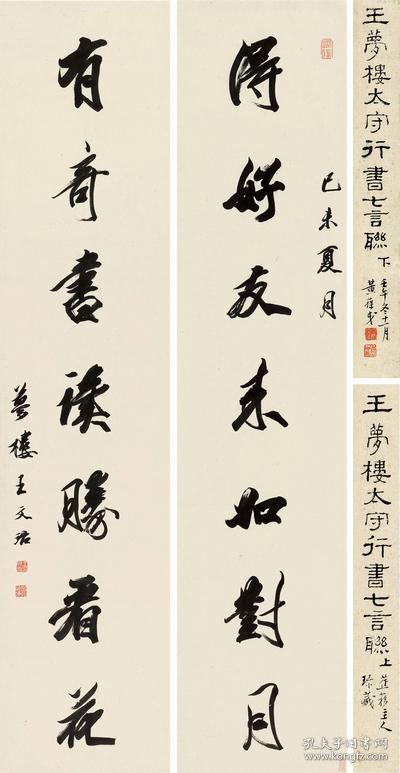 王夢樓太守行書七言聯下
壬午冬十一月
黃葆戉
王夢樓太守行書七言聯上
主人
珍藏
得好友來如對月
己未夏月
有奇書讀勝看花
夢樓王文治
孔夫子旧书网